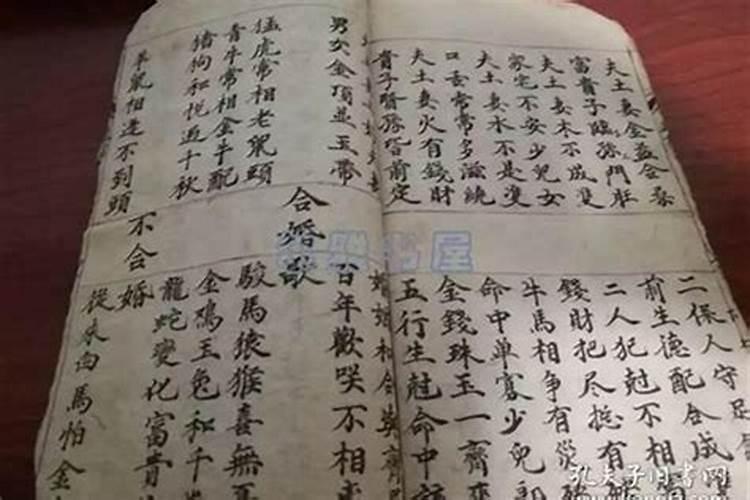 夫土妻金益合
富貴子臨孫門
夫土妻木不成雙
家宅不安少兒女
夫土妻水不是雙
口舌常常多滋繞
夫土妻火有錢財
貴子賢孫皆前定
二保人守足
前生德配合成
二人犯尅不相
錢財把尽有
牛馬相争有災
命中单寡少兒
金錢珠玉一齊
五行生尅命中
婚姻和合
男女金項並玉帶
猛虎常相老鼠頭
青牛常相金牛配
猪狗和悦过千秋
羊鼠相逢不到頭
合婚歌
百年歡咲不相
駿馬猿猴喜無
金鴻玉兔和千
龍蛇變化富貴
不合婚
從来白馬怕金
孔夫子旧书网